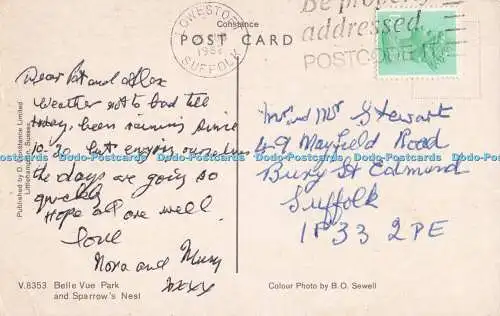 Constance
POST CARD
LOWESTOFT
SUFFOLK
Be properly
addressed
POSTCODE IT
Dear Pat and Alex
Weather not to bad till
today, been raining since
10-30 but enjoying ourselves
the days are going so
quickly
Hope all are well.
love
Nora and
xxxx
Mr and Mrs Stewart
49 Mayfield Road
Bury St Edmund
Suffolk
IP33 2PE
Published by D. Constance Limited
Littlehampton, Sussex
V.8353 Belle Vue Park
and Sparrow's Nest
Colour Photo by B.O. Sewell
Dodo-Postcards Dodo-Postcards Dodo-Postcards Dodo-Postcards Dodo-Postcards